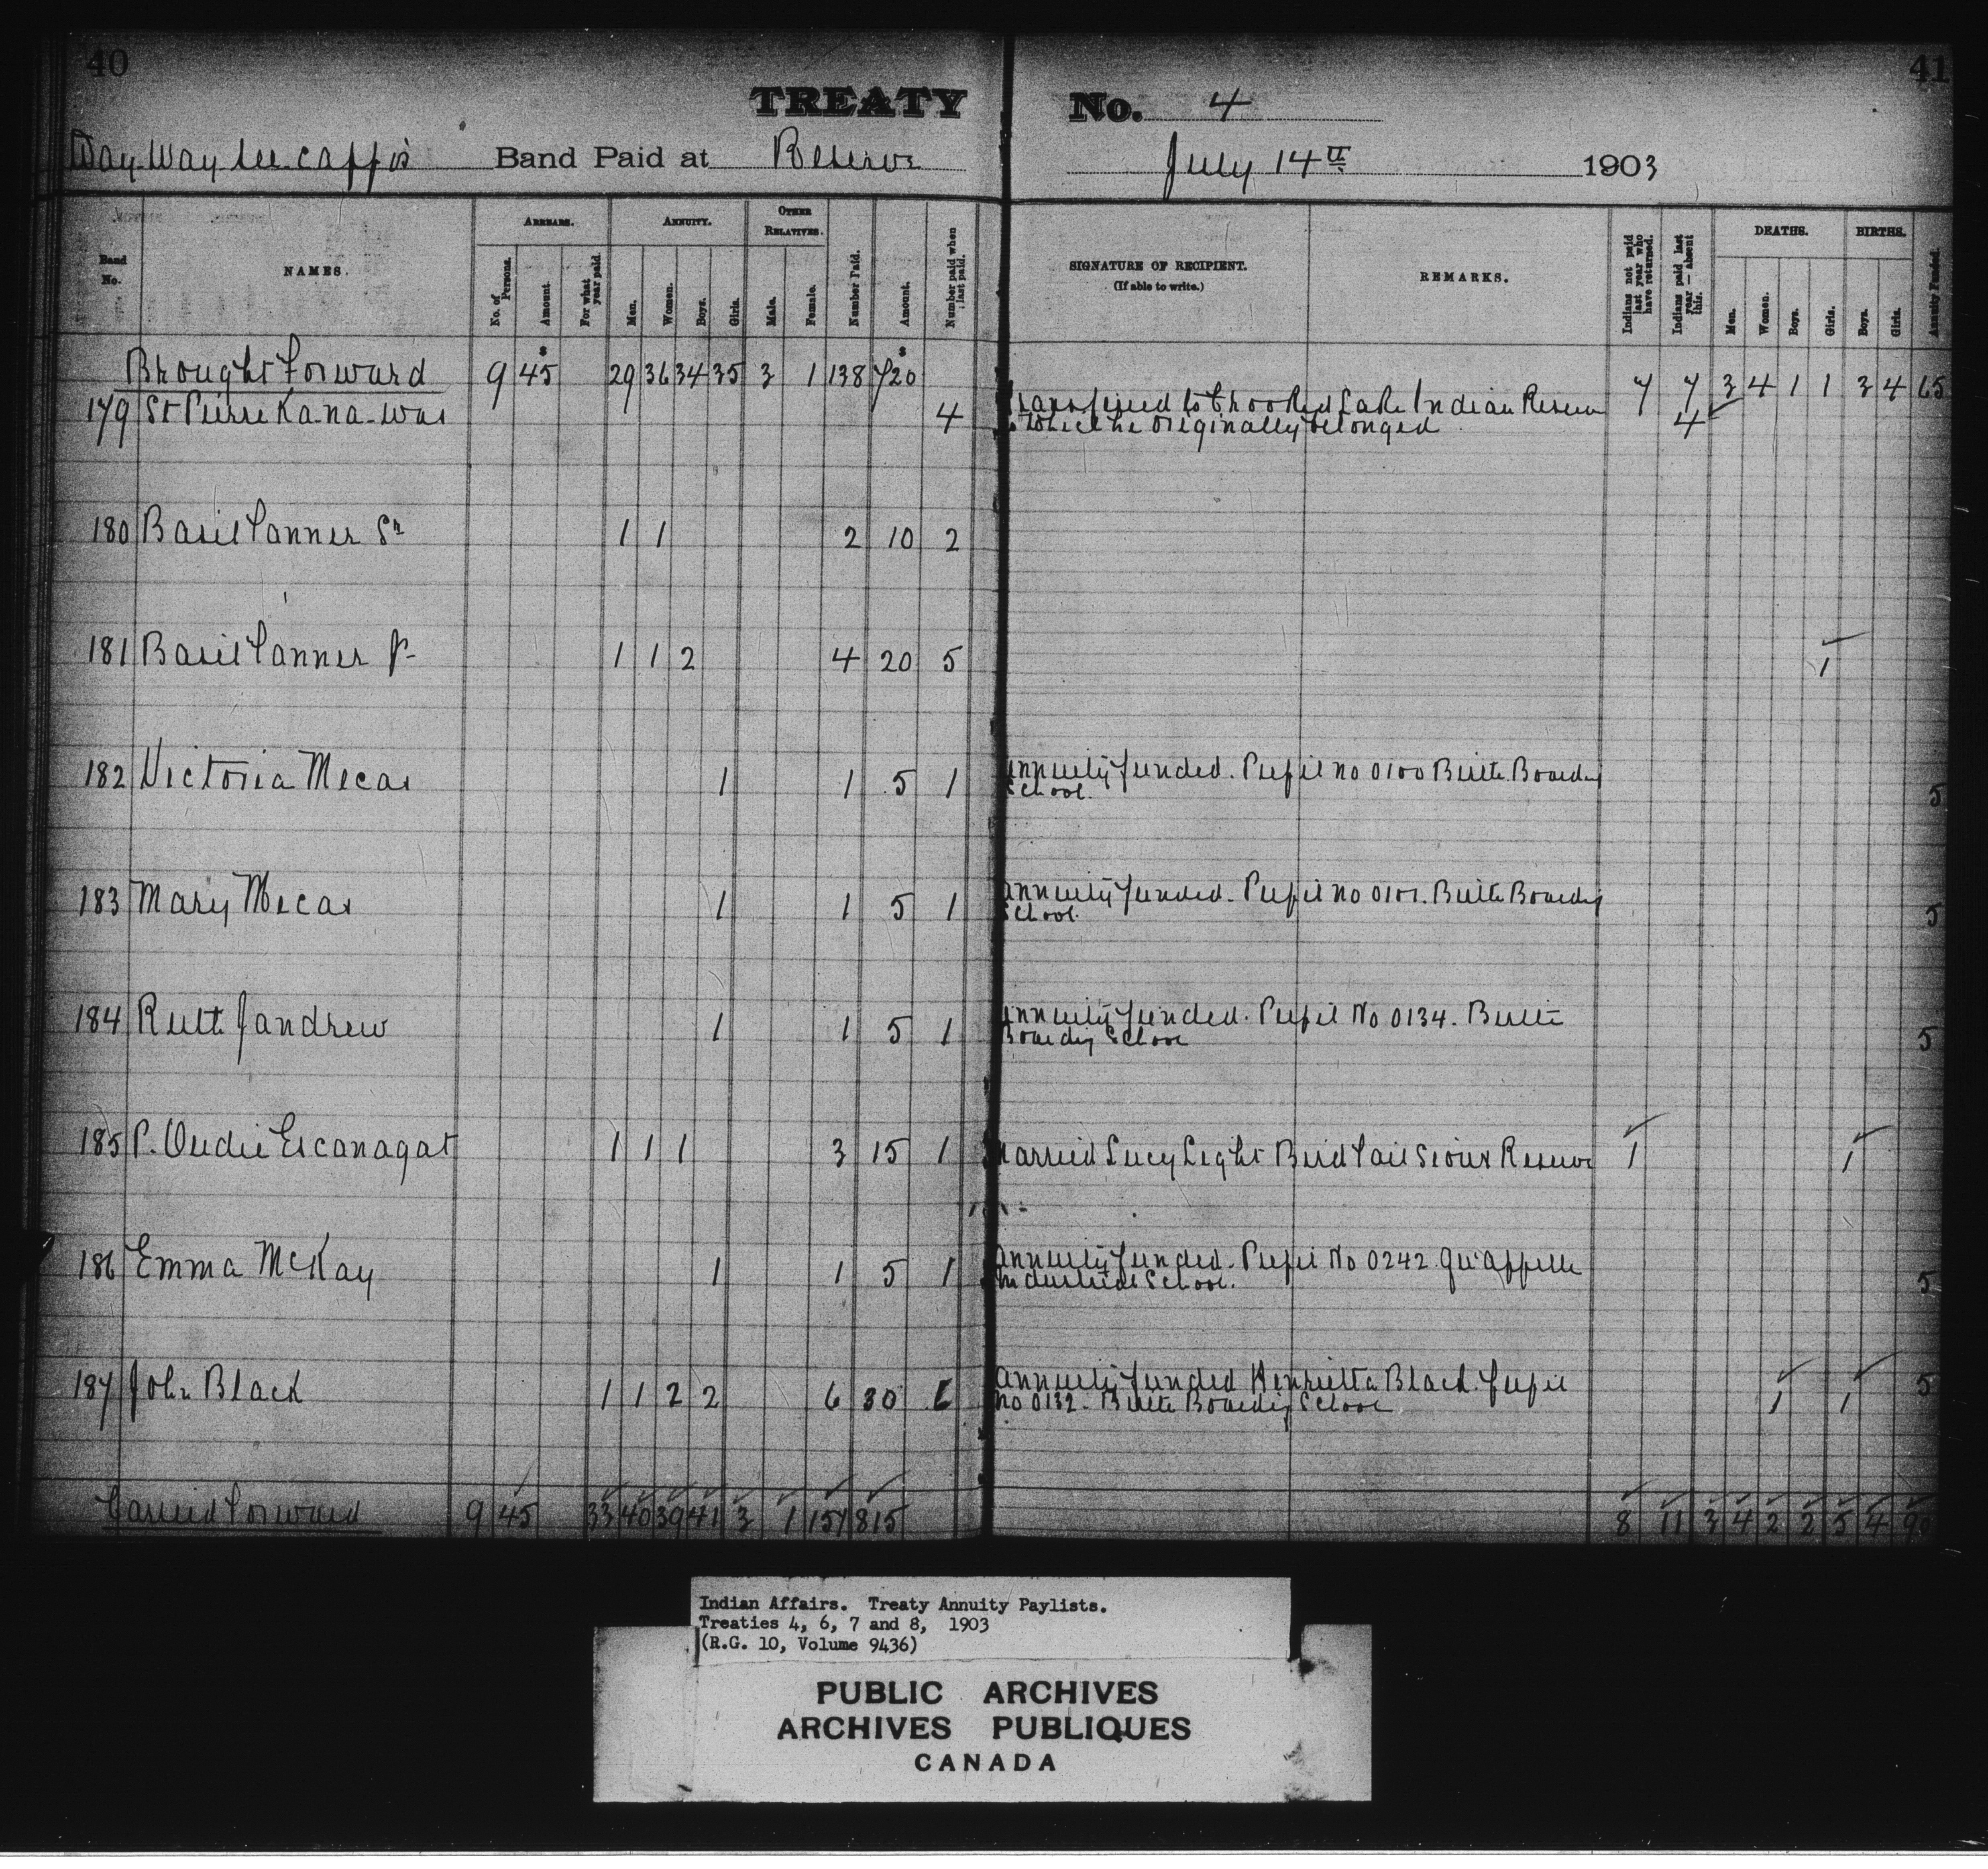 40
41
TREATY No. 4
Way-Way-see-cappo's Band Paid at Reserve July 14th 1903
Band No.
NAMES.
ARREARS.
No. of Persons.
Amount
For what year paid.
ANNUITY.
Men.
Women.
Boys.
Girls.
OTHER RELATIVES.
Male.
Female.
Number Paid.
Amount.
Number paid when last paid.
SIGNATURE OF RECIPIENT.
(If able to write.)
REMARKS.
Indians not paid last year who have returned.
Indians paid last year—absent this.
DEATHS.
Men.
Women.
Boys.
Girls.
BIRTHS.
Boys.
Girls.
Annuity Funded.
Brought Forward 9 $45 29 36 34 35 3 1 138 $720 7 7 3 4 1 1 3 4 65
179 St Pierre Ka-na-was 4 Transferred to Crooked Lake Indian Reserve 4
to which he originally belonged
180 Basil Tanner Sr 1 1 2 10 2
181 Basil Tanner Jr 1 1 2 4 20 5 1
182 Victoria Mecas 1 1 5 1 Annuity funded. Pupil no 0100 Birtle Boarding 5
School.
183 Mary Mecas 1 1 5 1 Annuity funded. Pupil no 0101. Birtle Boarding 5
School.
184 Ruth Jandrew 1 1 5 1 Annuity funded. Pupil No 0134. Birtle 5
Boarding School
185 P. Oudie Escanagat 1 1 1 3 15 1 Married Lucy Light Bird Tail Sioux Reserve 1 1
186 Emma McKay 1 1 5 1 Annuity funded. Pupil No 0242 Qu'Appelle 5
Industrial School.
187 John Black 1 1 2 2 6 30 6 Annuity funded Henrietta Black pupil 1 1 5
no 0132. Birtle Boarding School
Carried Forward 9 45 33 40 39 41 3 1 157 815 8 11 3 4 2 2 5 4 90
Indian Affairs. Treaty Annuity Paylists.
Treaties 4, 6, 7 and 8, 1903
(R.G. 10, Volume 9436)
PUBLIC ARCHIVES
ARCHIVES PUBLIQUES
CANADA